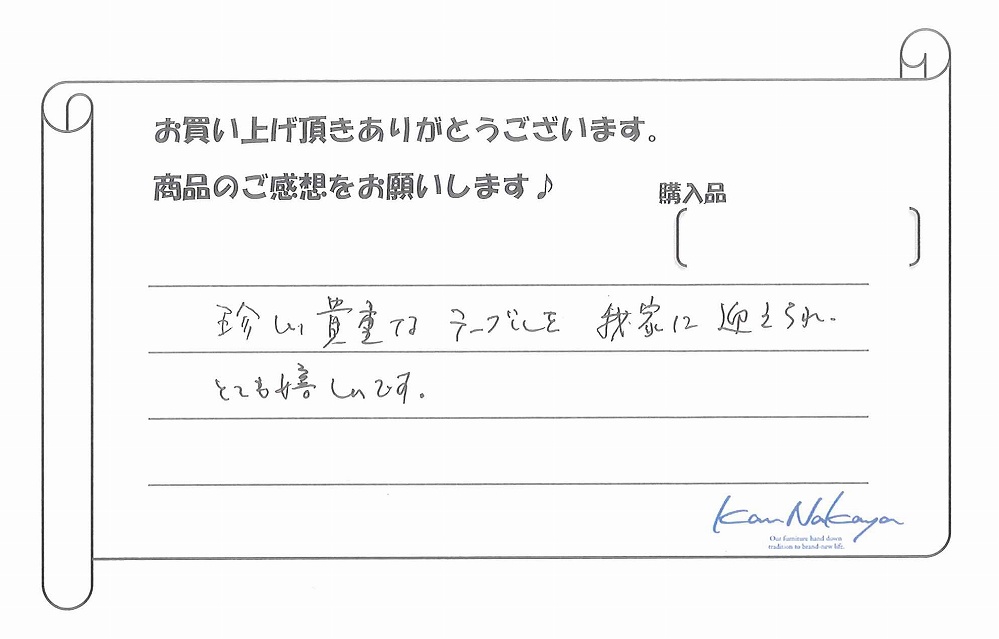 お買い上げ頂きありがとうございます。
商品のご感想をお願いします♪
購入品
珍しい貴重なテーブルを 我家に 迎えられ.
とても嬉しいです.
Kan Nakaya
Our furniture hand down
tradition to brand-new life.